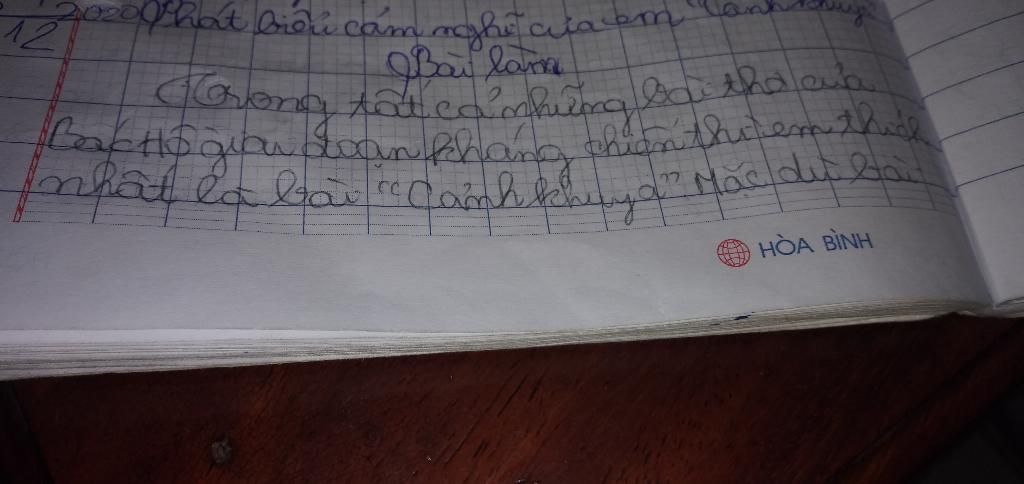 12 2020 Phát biểu cảm nghĩ của em "Cảnh khuya"
Bài làm
Trong tất cả những bài thơ của
Bác Hồ giai đoạn kháng chiến thì em thích
nhất là bài "Cảnh khuya" Mặc dù bài
HÒA BÌNH